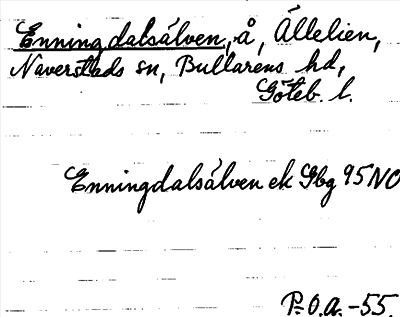 Enningdalsälven, å, Ällelien,
Naverstads sn, Bullarens hd,
Göteb. l.
Enningdalsälven ek Gbg 95NO
P.O.a. -55.